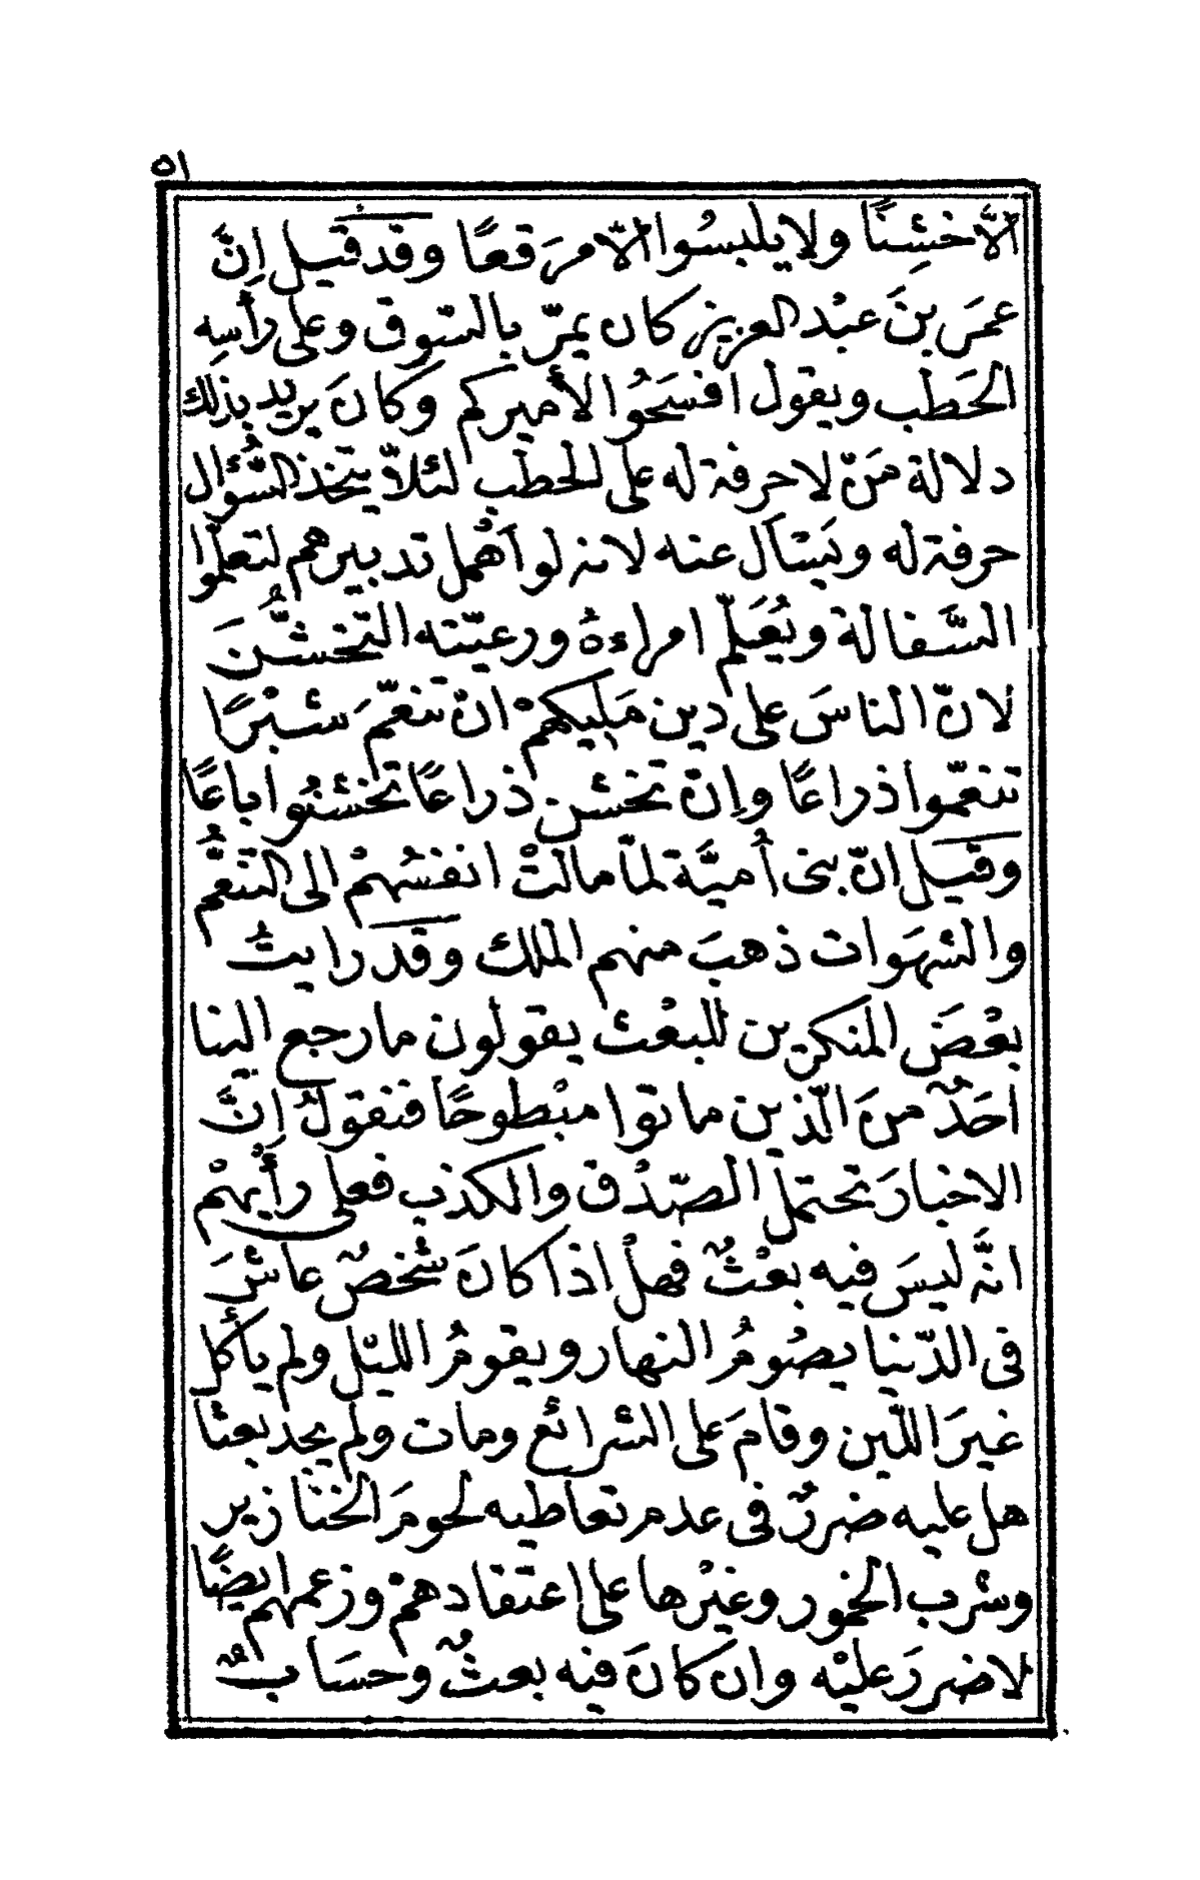 ٥١
الّا خشِنًا ولا يلبسُوا الّا مرَقعًا وقد قيل اِنَّ
عمَر بنَ عبْد العزيز كان يمرّ بالسّوق وعلى رأسِه
الحَطَب ويقول افسَحُوا لأميركم وكانَ يريد بذلك
دلالة مَنّ لا حرفة له على الحطب لئلاّ يتخذ السُّؤال
حرفة له ويَسْأل عنه لانه لو أهْمل تدبيرهم لتعلّموا
السَّفالة ويُعَلّم امراءهُ ورعيّته التخشُّنَ
لانّ الناسَ على دين مَلِيكهمْ ان تنعّمَ شبْرًا
تنعّموا ذراعًا وإن تخشن ذراعًا تخشنُوا باعًا
وقيل انّ بنى أميَّة لمّا مالتْ انفسُهمْ الى التنعُّم
والشهَوات ذهبَ منهم الملك وقد رايتُ
بعْضَ المنكرين للبعْث يقولون ما رجع الينا
احَدٌ منَ الّذين ماتوا مبْطوحًا فنقولُ إنَّ
الاخبارَ تحتمل الصّدْق والكذب فعلى رأيهمْ
انَّه ليسَ فيه بعْثٌ فهلْ اذا كانَ شخصٌ عاشَ
فى الدّنيا يصُومُ النهار ويقومُ الليْل ولم يأكل
غيرَ اللّبن وقامَ على الشرائع ومات ولم يجد بعثًا
هل عليه ضررٌ فى عدم تعاطيه لحومَ الخنازير
وشرب الخمور وغيْرها على اعتقادهمْ وزعمهم ايضًا
لا ضررَ عليْه وان كانَ فيه بعثٌ وحسَابٌ